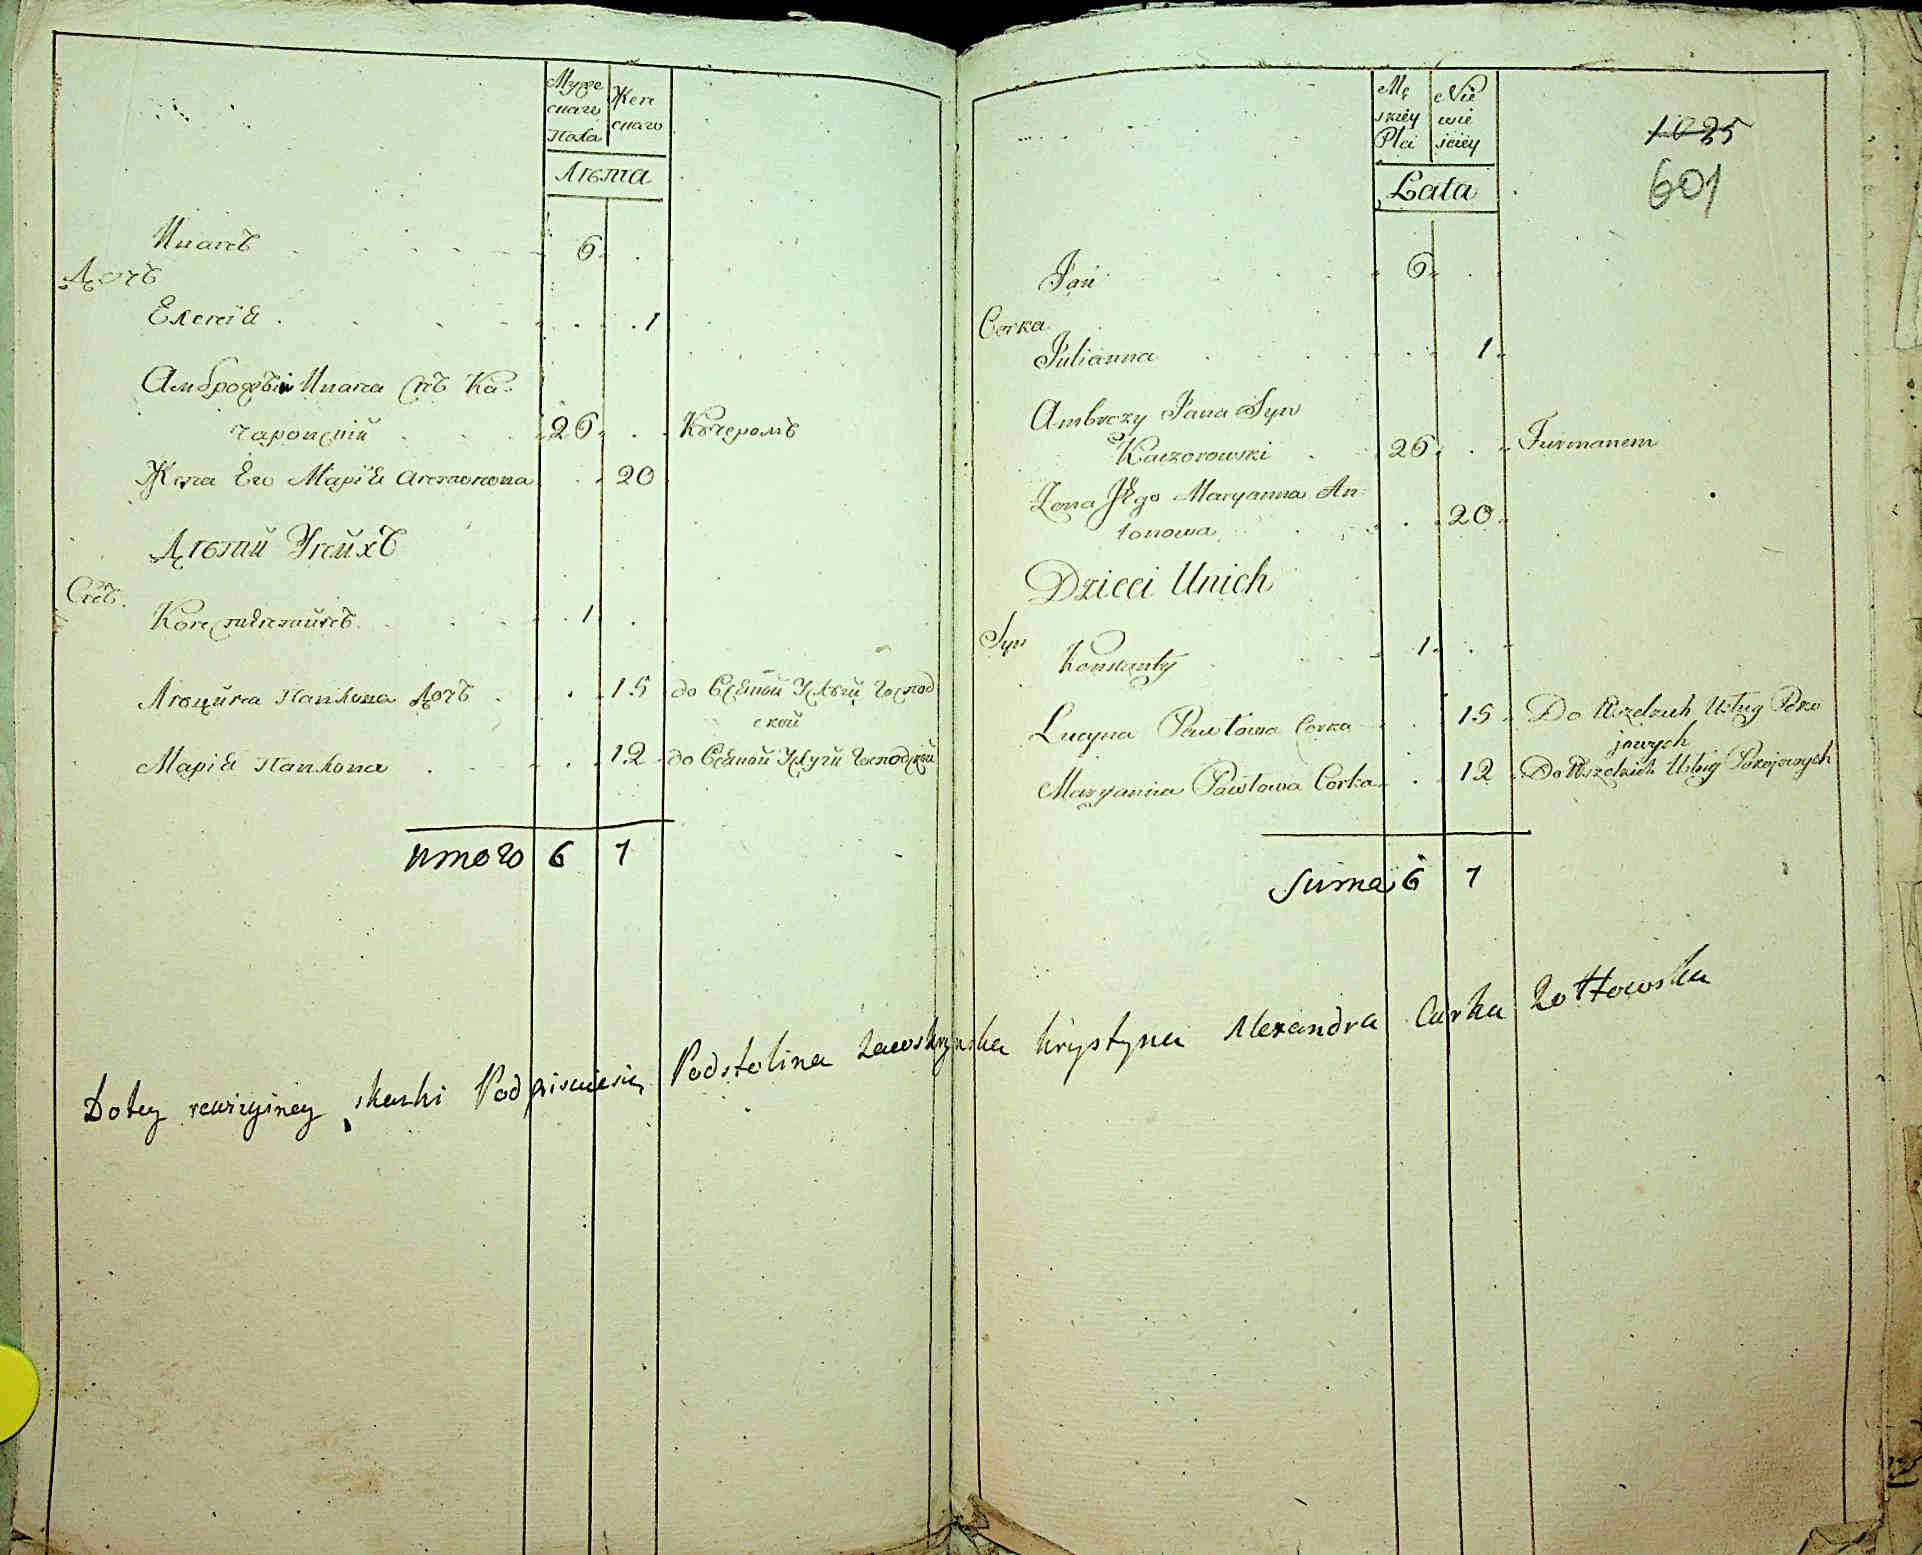 Мужескаго Пола
Женскаго
Лѣта
Иванъ 6
Дочь
Елена 1
Амброжѣй Ивана Снъ Ка-
чаровскій 26 Кучеромъ
Жена Его Марія Антонова 20
Дѣтий Унейхъ
Снъ
Констянтинъ 1
Люцина Павлова Дочъ 15 до Всякой Услуги Господ
ской
Марія Павлова 12 до Всякой Услуги Господской
итого 6 7
Męskiey Płci
Niewieściey
Lata
1025
601
Jan 6
Corka
Julianna 1
Ambrozy Jana Syn
Kaczorowski 26 Furmanem
Zona Jego Maryanna An-
tonowa 20
Dzieci Unich
Syn
Konstanty 1
Lucyna Pawłowa Corka 15 Do Wszelkich Usług Poko
jowych
Maryanna Pawłowa Corka 12 Do Wszelkich Usług Pokojowych
Suma 6 7
Dotey rewizyiney skaski Podpisuiesię Podstolina Zawskrzynska Krystyna Alexandra Curka Zołtowska